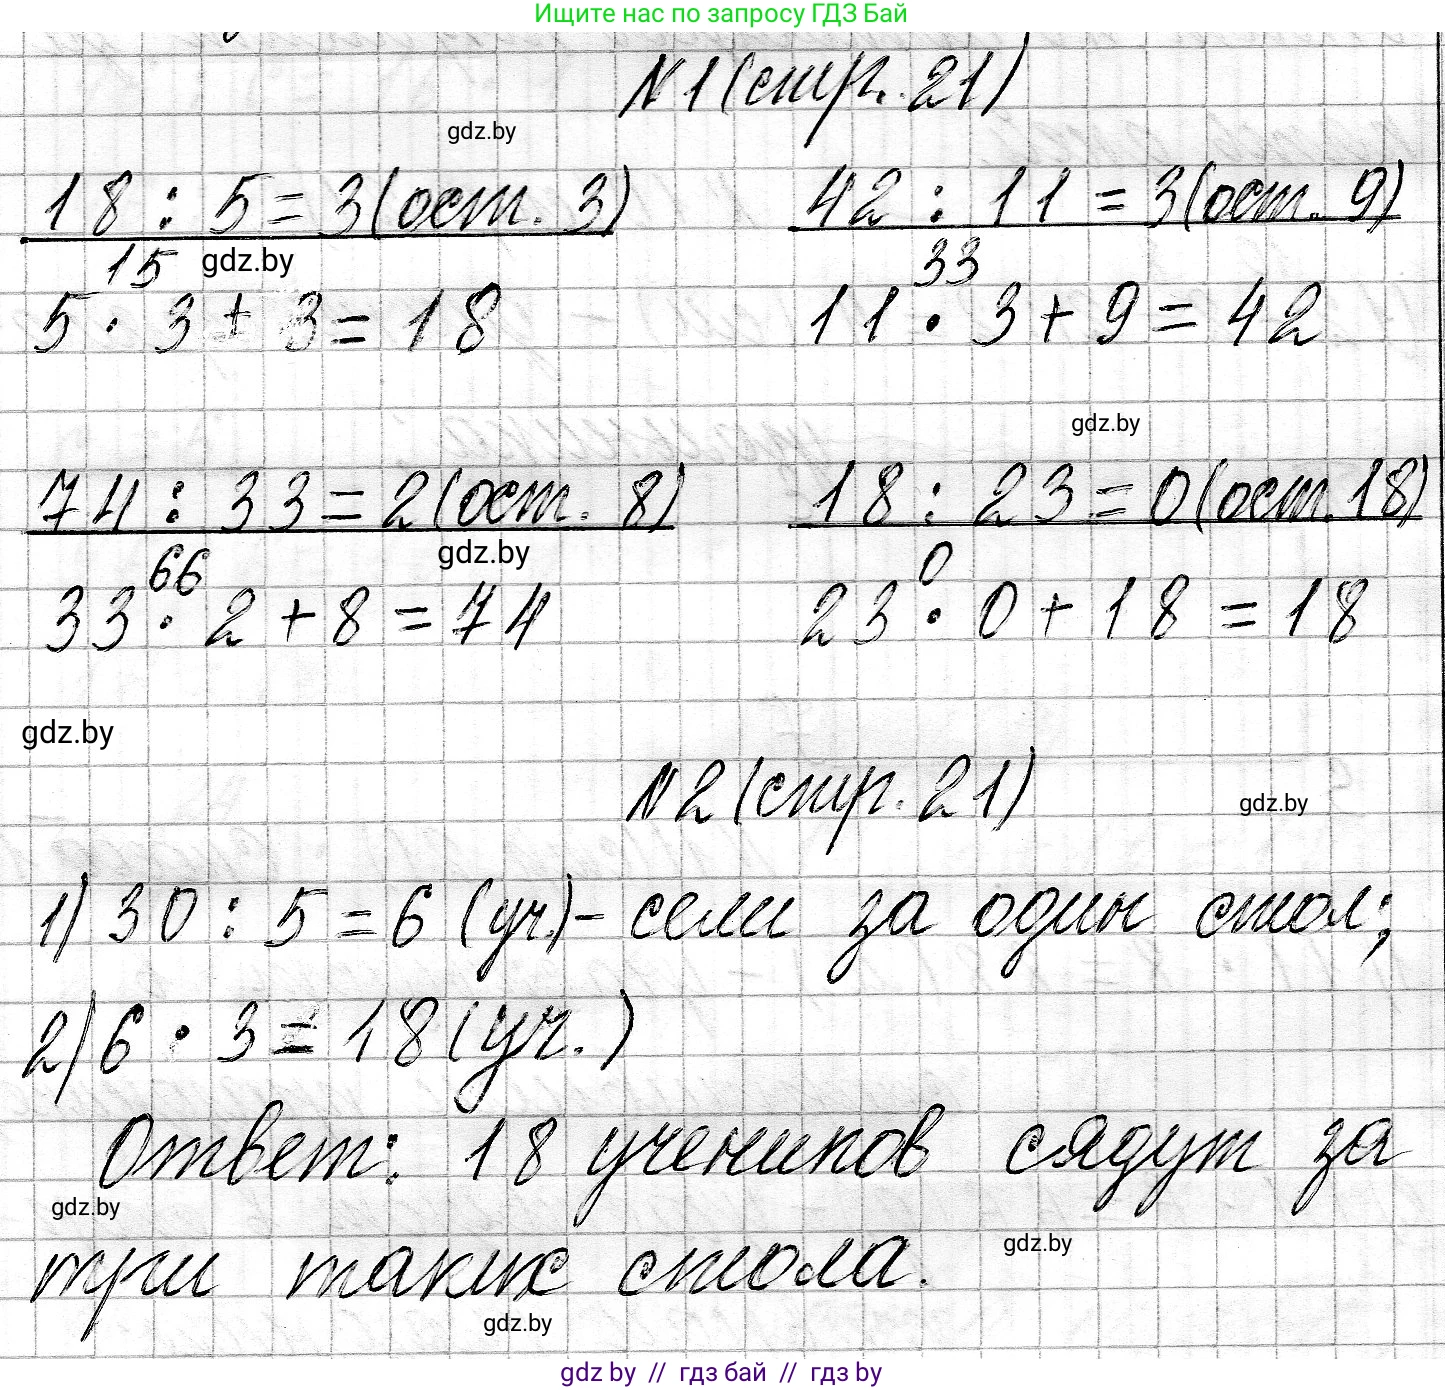 Ищите нас по запросу ГДЗ Бай
№1 (стр. 21)
gdz.by
18 : 5 = 3 (ост. 3)
42 : 11 = 3 (ост. 9)
15
gdz.by
33
5 · 3 + 3 = 18
11 · 3 + 9 = 42
gdz.by
74 : 33 = 2 (ост. 8)
18 : 23 = 0 (ост. 18)
66
gdz.by
0
33 · 2 + 8 = 74
23 · 0 + 18 = 18
gdz.by
№2 (стр. 21)
gdz.by
1) 30 : 5 = 6 (уч.) – сели за один стол;
2) 6 · 3 = 18 (уч.)
Ответ: 18 учеников сядут за
gdz.by
три таких стола.
gdz.by
gdz.by
gdz.by // гдз бай // гдз by